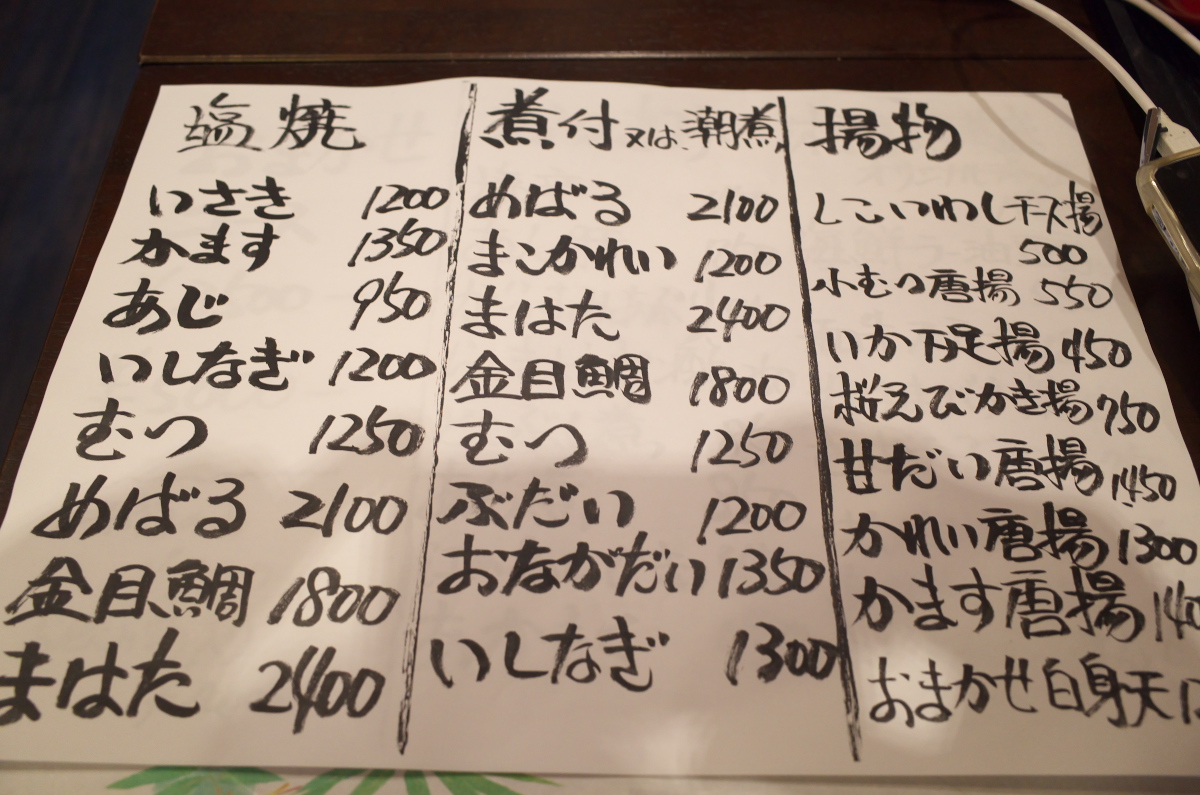 塩焼
いさき 1200
かます 1350
あじ 950
いしなぎ 1200
むつ 1250
めばる 2100
金目鯛 1800
まはた 2400
煮付又は潮煮
めばる 2100
まこかれい 1200
まはた 2400
金目鯛 1800
むつ 1250
ぶだい 1200
おながだい 1350
いしなぎ 1300
揚物
しこいわしチーズ揚
500
小むつ唐揚 550
いか下足揚 450
桜えびかき揚 750
甘だい唐揚 1450
かれい唐揚 1300
かます唐揚
おまかせ白身天